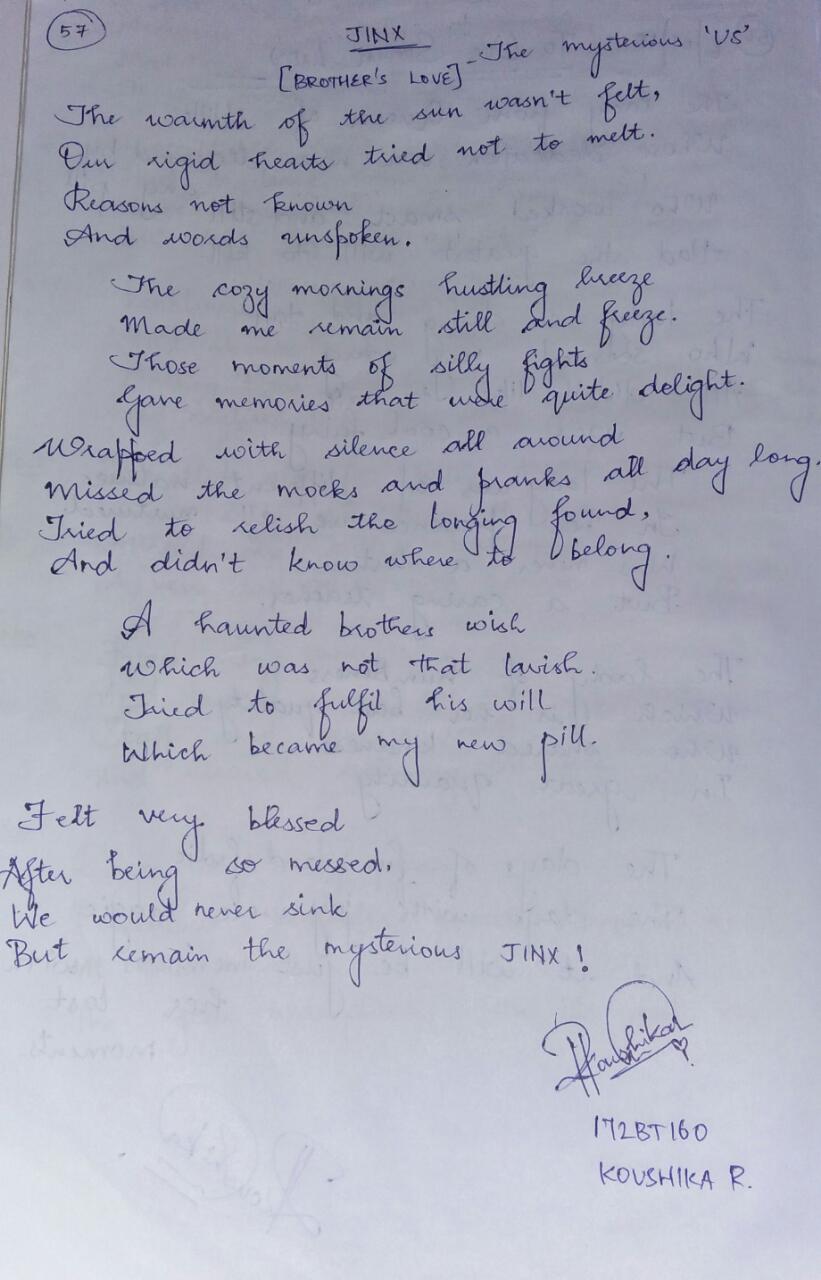 57
JINX
[BROTHER'S LOVE] - The mysterious 'US'
The warmth of the sun wasn't felt,
Our rigid hearts tried not to melt.
Reasons not known
And words unspoken.
The cozy mornings hustling breeze
Made me remain still and freeze.
Those moments of silly fights
Gave memories that were quite delight.
Wrapped with silence all around
Missed the mocks and pranks all day long.
Tried to relish the longing found,
And didn't know where to belong.
A haunted brothers wish
Which was not that lavish.
Tried to fulfil his will
Which became my new pill.
Felt very blessed
After being so messed.
We would never sink
But remain the mysterious JINX!
RKoushika
172BT160
KOUSHIKA R.